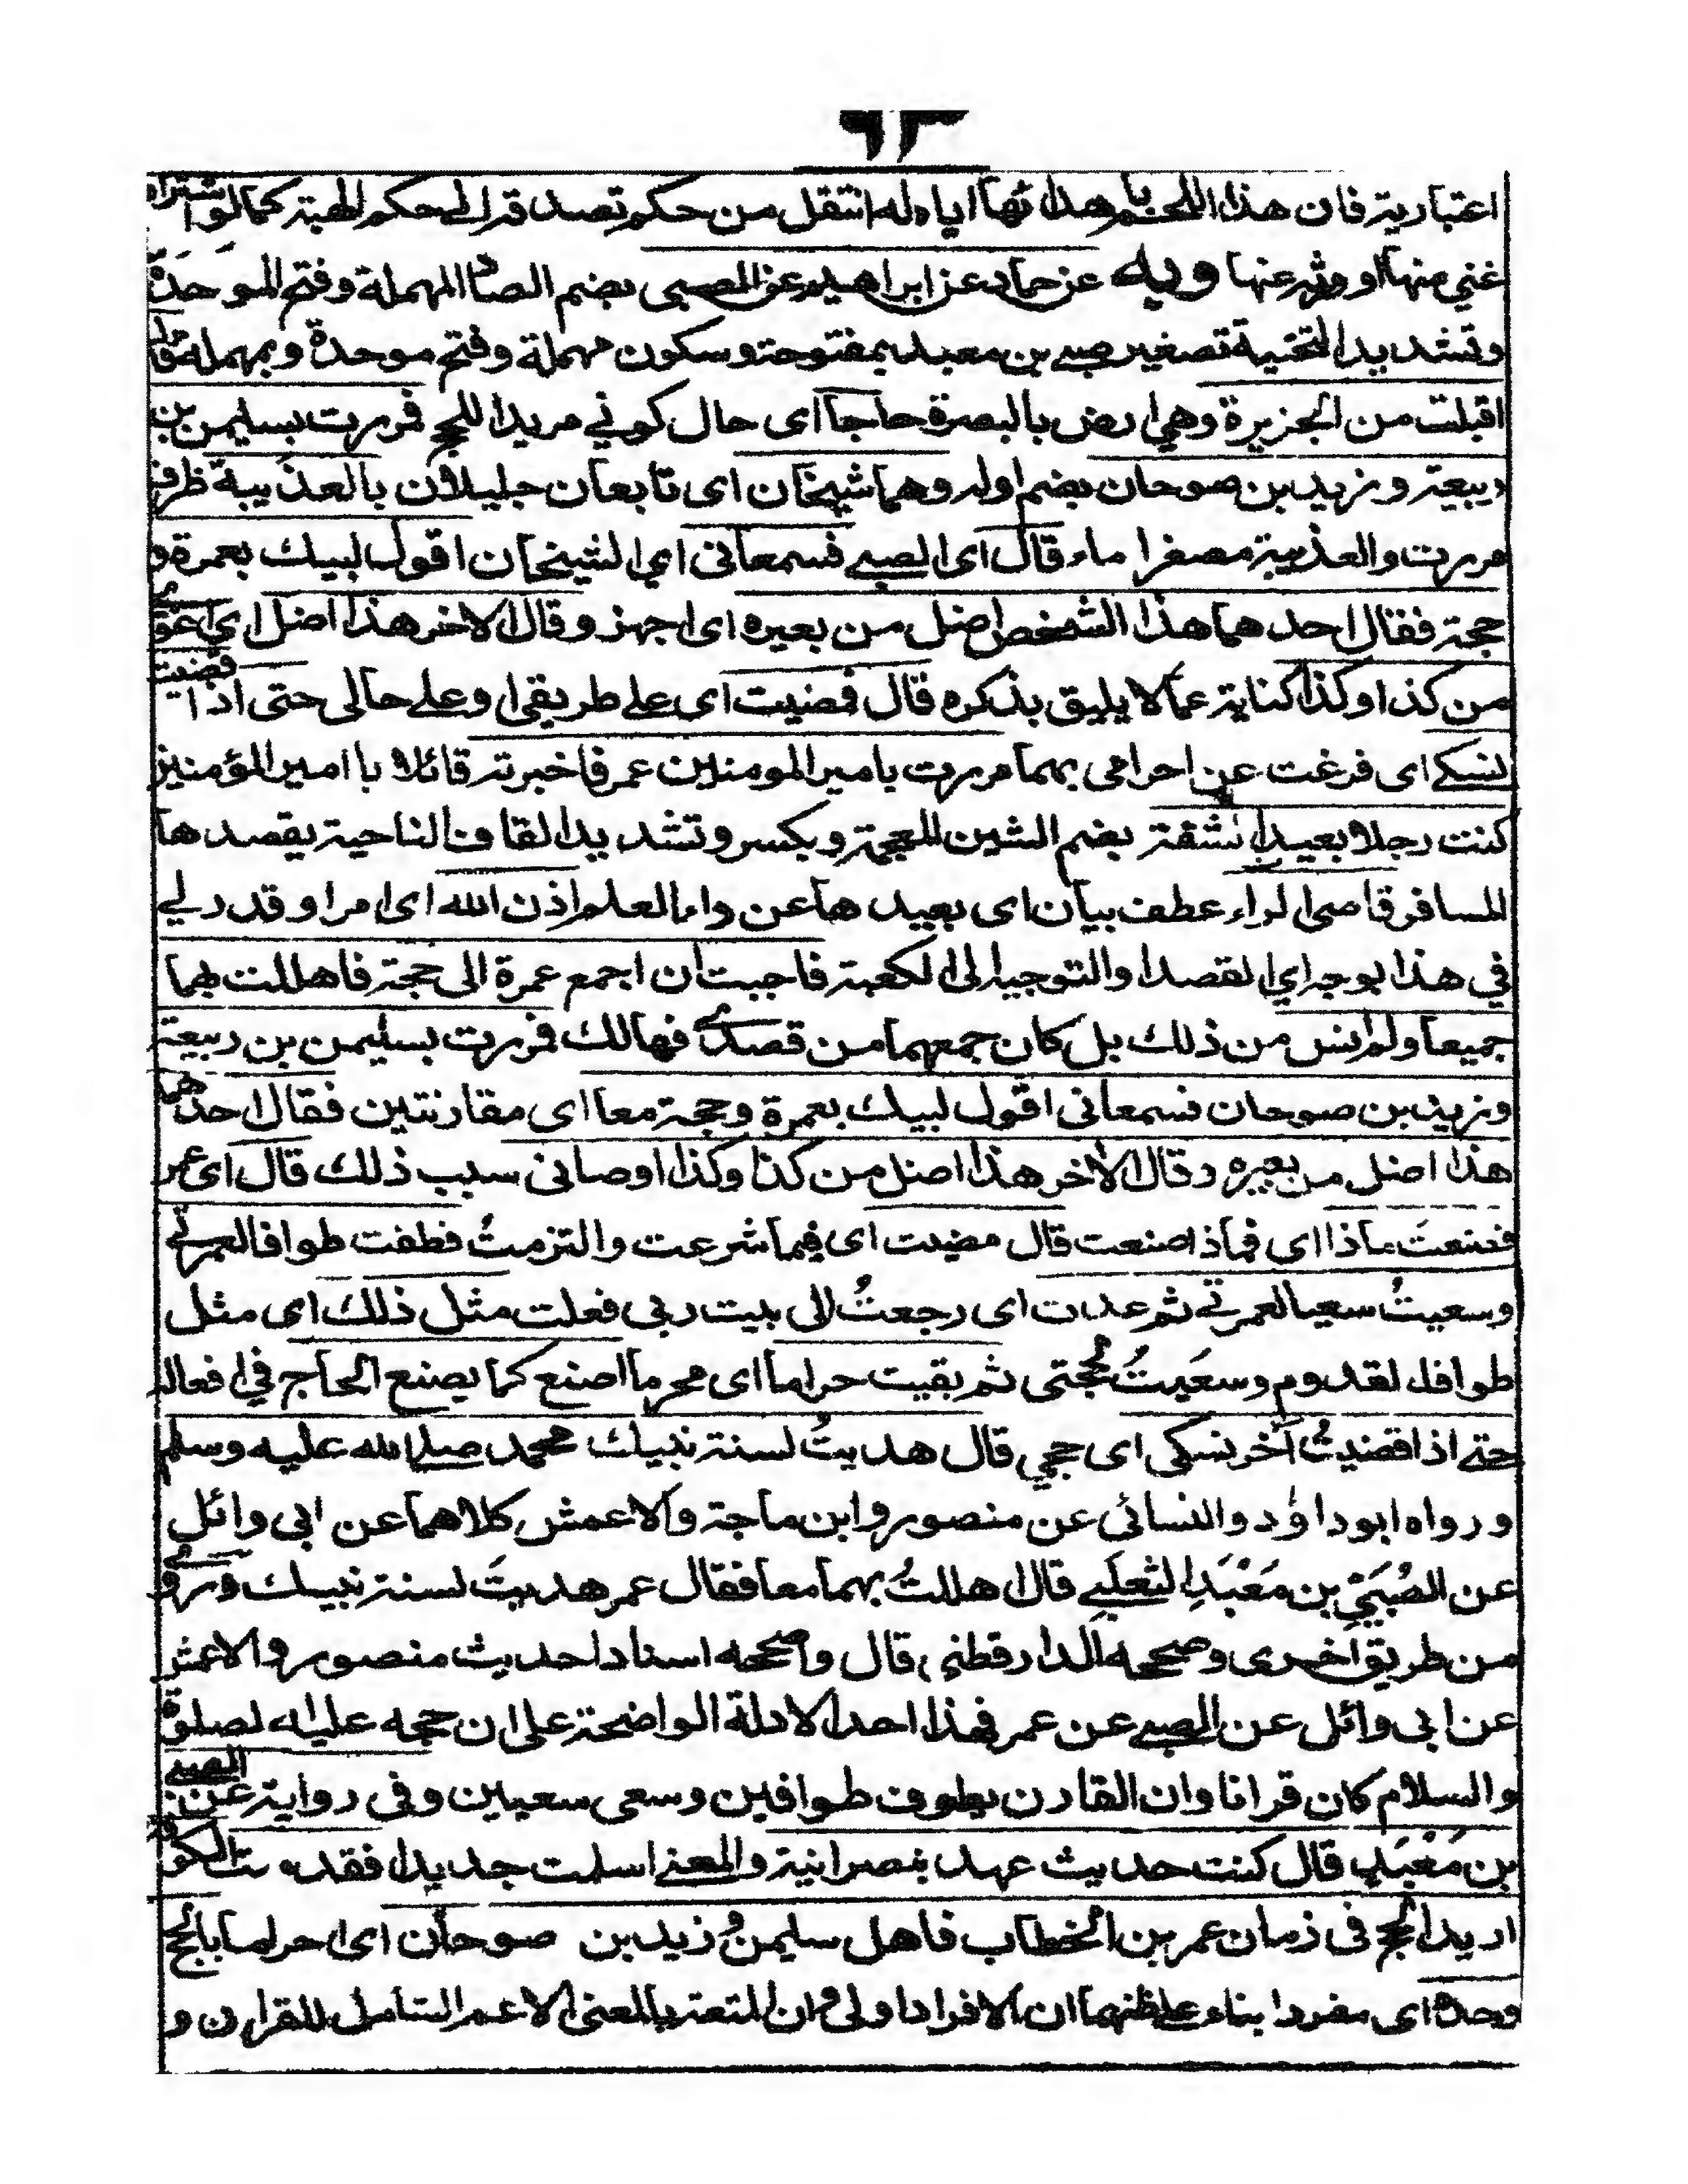 ٦٢
اعتبارية فان هذا اللحم باهدائها اياه له انتقل من حكم تصدقه الى حكم الهبة كما لو اشتراه
غني منها او ورثه عنها وبه عن حماد عن ابراهيم عن الصبي بضم الصاد المهملة وفتح الموحدة
وتشديد التحتية تصغير صبي بن معبد بمفتوحة وسكون مهملة وفتح موحدة وبمهملة قال
اقبلت من الجزيرة وهي ارض بالبصرة حاجا اى حال كوني مريدا للحج فمررت بسليمن بن
ربيعة وزيد بن صوحان بضم اوله وهما شيخان اى تابعان جليلان بالعذيبة ظرف
مررت والعذيبة مصغرا ماء قال اى الصبي فسمعانى اي الشيخان اقول لبيك بعمرة و
حجة فقال احدهما هذا الشخص اضل من بعيره اى اجهز وقال الاخر هذا اضل اي
من كذا وكذا كناية عما لا يليق بذكره قال فمضيت اى على طريقي او على حالى حتى اذا قضيت
نسكي اى فرغت عن احرامى بهما مررت بامير المومنين عمر فاخبرته قائلا يا امير المؤمنين
كنت رجلا بعيد الشقة بضم الشين المعجمة وبكسر وتشديد القاف الناحية يقصدها
المسافر قاصى الدار عطف بيان اى بعيدها عن دار العلم اذن الله اى امر او قدر لي
في هذا الوجه اي القصد والتوجه الى الكعبة فاحببت ان اجمع عمرة الى حجة فاهللت بهما
جميعا ولم انس من ذلك بل كان جمعهما من قصدي فهالك فمررت بسليمن بن ربيعة
وزيد بن صوحان فسمعانى اقول لبيك بعمرة وحجة معا اى مقارنتين فقال احدهما
هذا اضل من بعيره وقال الاخر هذا اضل من كذا وكذا اوصانى سبب ذلك قال اى عمر
فصنعت ماذا اى فماذا صنعت قال مضيت اى فيما شرعت والتزمت فطفت طوافا لعمرتي
وسعيت سعيا لعمرتي ثم عدت اى رجعت الى بيت ربى فعلت مثل ذلك اى مثل
طوافا لقدوم وسعيت لحجتى ثم بقيت حراما اى محرما اصنع كما يصنع الحاج في افعاله
حتى اذا قضيت آخر نسكى اى حجي قال هديت لسنة نبيك محمد صلى الله عليه وسلم
ورواه ابو داؤد والنسائى عن منصور وابن ماجة والاعمش كلاهما عن ابى وائل
عن الصُّبَيّ بن مَعْبَدِ الثعلبي قال اهللتُ بهما معا فقال عمر هديت لسنة نبيك وروى
من طريق اخرى وصححه الدارقطني قال واصححه اسنادا حديث منصور والاعمش
عن ابى وائل عن الصبي عن عمر فهذا احد الادلة الواضحة على ان حجه عليه الصلوة
والسلام كان قرانا وان القارن يطوف طوافين وسعى سعيين وفى رواية عن الصبي
بن مَعْبَدٍ قال كنت حديث عهد بنصرانية والمعنى اسلمت جديدا فقدمت الكوفة
اريد الحج فى زمان عمر بن الخطاب فاهل سليمن وزيد بن صوحان اى احراما بالحج
وحده اى مفردا بناء على ظنهما ان الافراد اولى وان المتعة بالمعنى الاعم الشامل للقران و